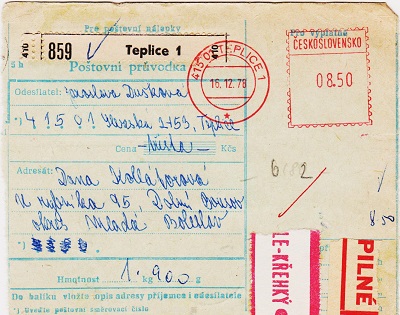 Pro poštovní nálepky
410
859
Teplice 1
410
Pro výplatné
5 b
Poštovní průvodka
415 01 TEPLICE 1
16.12.78
ČESKOSLOVENSKO
08.50
Odesílatel: Jaroslava Dusková
415 01 2153, Teplice
Cena Kčs
Adresát: Dana Kollátorová
U rybníka 95, Dolní Bousov
okres Mladá Boleslav
*)
850
Hmotnost 1 kg 900 g
Do balíku vložte opis adresy příjemce i odesílatele
*) Uveďte poštovní směrovací číslo
LE-KŘEHKÝ
PILNÉ